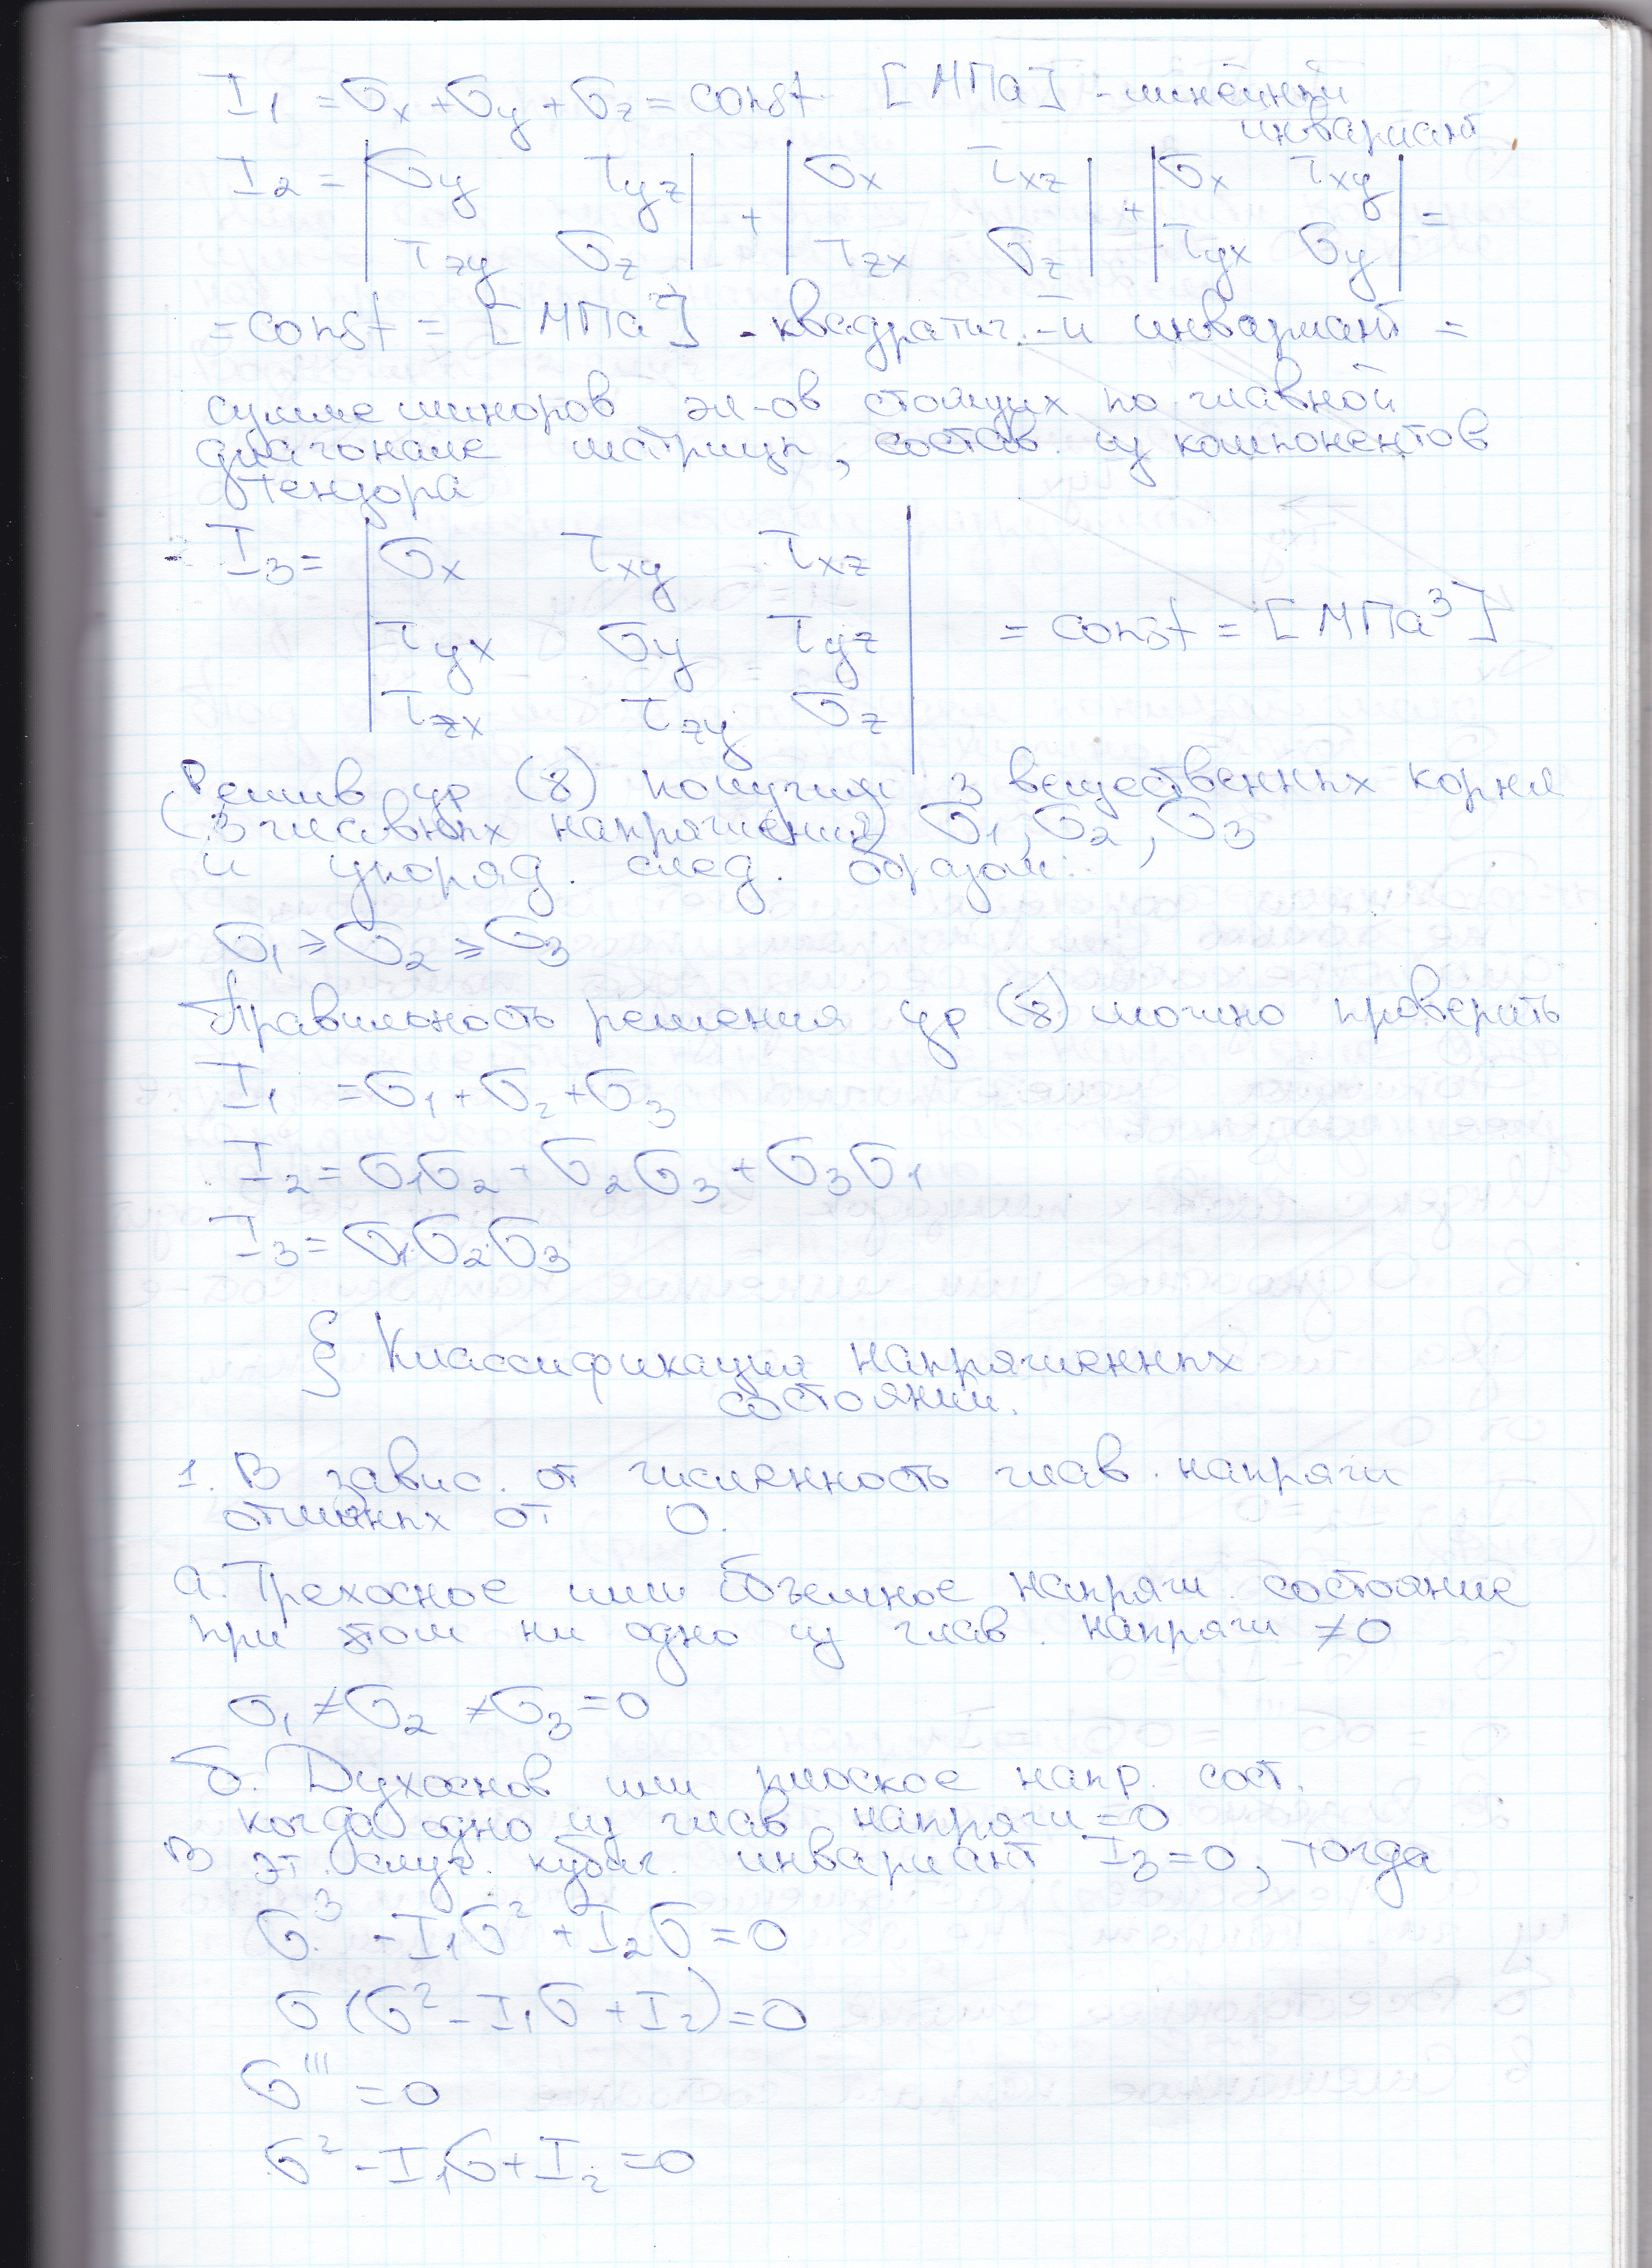 I₁ = σx + σy + σz = const [МПа] - линейный
инвариант
I₂ = |σy τyz| + |σx τxz| + |σx τxy| =
|τzy σz| |τzx σz| |τyx σy|
= const = [МПа²] - квадратич.-й инвариант =
сумме миноров эл-ов стоящих по главной
диагонале матрицы, состав. из компонентов
тензора
- I₃ = |σx τxy τxz|
|τyx σy τyz| = const = [МПа³]
|τzx τzy σz|
Решив ур (8) получим 3 вещественных корня
(3 главных напряжения) σ₁, σ₂, σ₃
и упоряд. след. образом:
σ₁ ⩾ σ₂ ⩾ σ₃
Правильность решения ур (8) можно проверить
I₁ = σ₁ + σ₂ + σ₃
I₂ = σ₁σ₂ + σ₂σ₃ + σ₃σ₁
I₃ = σ₁σ₂σ₃
§ Классификация напряженных
состояний.
1. В завис. от численность глав. напряж
отличных от 0.
а. Трехосное или объемное напряж. состояние
при этом ни одно из глав. напряж ≠0
σ₁ ≠ σ₂ ≠ σ₃ = 0
б. Духоснов или плоское напр. сост.
когда одно из глав напряж = 0
В эт. случ. кубич. инвариант I₃ = 0, тогда
σ³ - I₁σ² + I₂σ = 0
σ (σ² - I₁σ + I₂) = 0
σ''' = 0
σ² - I₁σ + I₂ = 0